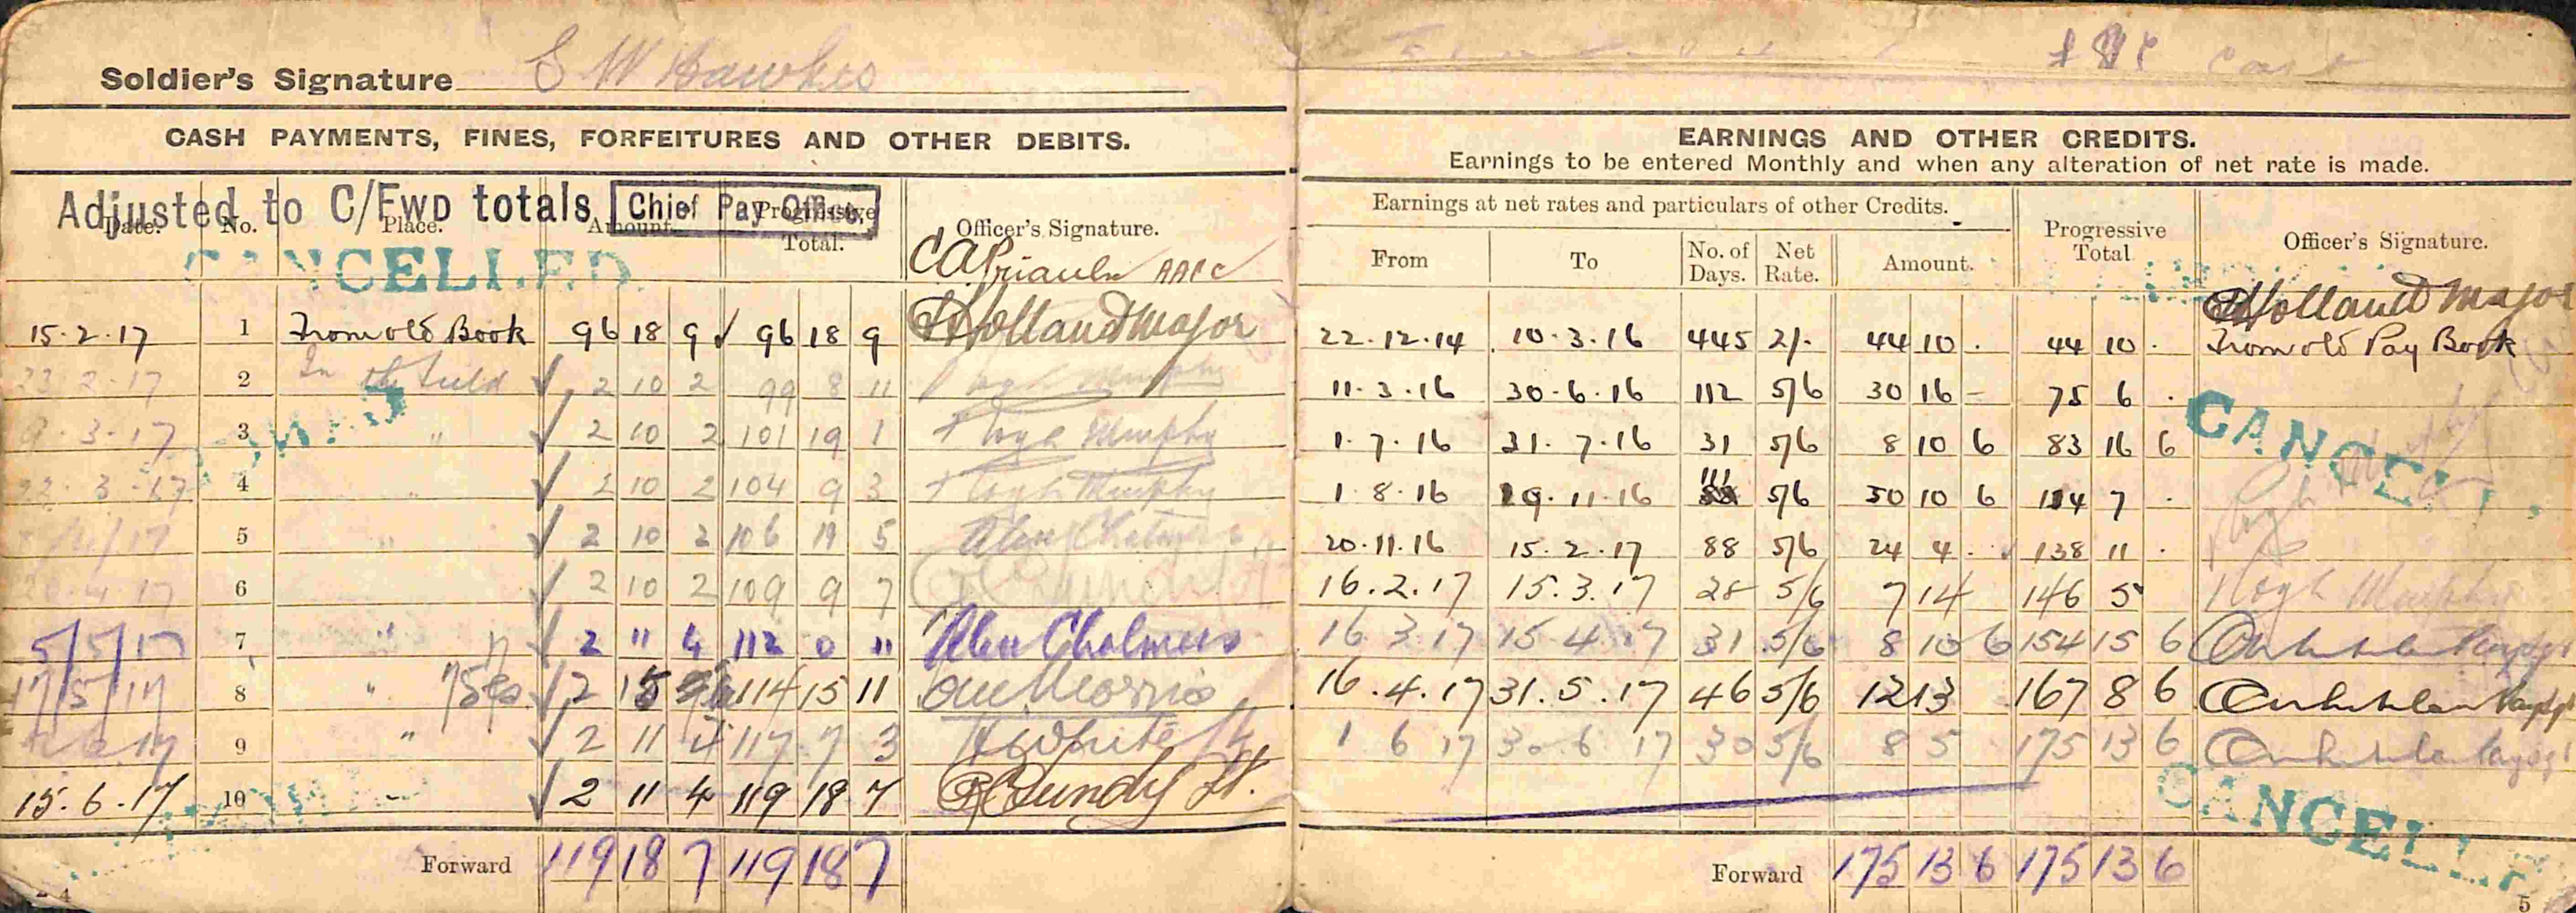 Soldier's Signature S W Hawkes
CASH PAYMENTS, FINES, FORFEITURES AND OTHER DEBITS.
Adjusted to C/Fwd totals Chief Pay Office.
Date. No. Place. Amount. Progressive Total. Officer's Signature.
CANCELLED
AAPC
15.2.17 1 From old Book 96 18 9 96 18 9 Holland Major
23.2.17 2 In the Field 2 10 2 99 8 11 Murphy
9.3.17 3 " 2 10 2 101 19 1 Murphy
22.3.17 4 " 2 10 2 104 9 3 Murphy
5 " 2 10 2 106 19 5 Alex Chalmers
6 2 10 2 109 9 7
5/5/17 7 " 2 11 4 112 0 11 Alex Chalmers
17/5/17 8 " 2 15 114 15 11 Morris
9 " 2 11 4 117 7 3 White
15.6.17 10 2 11 4 119 18 7 Bundy Lt.
Forward 119 18 7 119 18 7
4
EARNINGS AND OTHER CREDITS.
Earnings to be entered Monthly and when any alteration of net rate is made.
Earnings at net rates and particulars of other Credits. Progressive Total Officer's Signature.
From To No. of Days. Net Rate. Amount.
Holland Major
22.12.14 10.3.16 445 2/- 44 10 . 44 10 . From old Pay Book
11.3.16 30.6.16 112 5/6 30 16 - 75 6 .
CANCELL
1.7.16 31.7.16 31 5/6 8 10 6 83 16 6
1.8.16 19.11.16 111 5/6 30 10 6 114 7 .
20.11.16 15.2.17 88 5/6 24 4 . 138 11 .
16.2.17 15.3.17 28 5/6 7 14 146 5 Murphy
16 3 17 15 4 17 31 5/6 8 10 6 154 15 6
16.4.17 31.5.17 46 5/6 12 13 167 8 6
1 6 17 30 6 17 30 5/6 8 5 175 13 6
CANCELLE
Forward 175 13 6 175 13 6
5